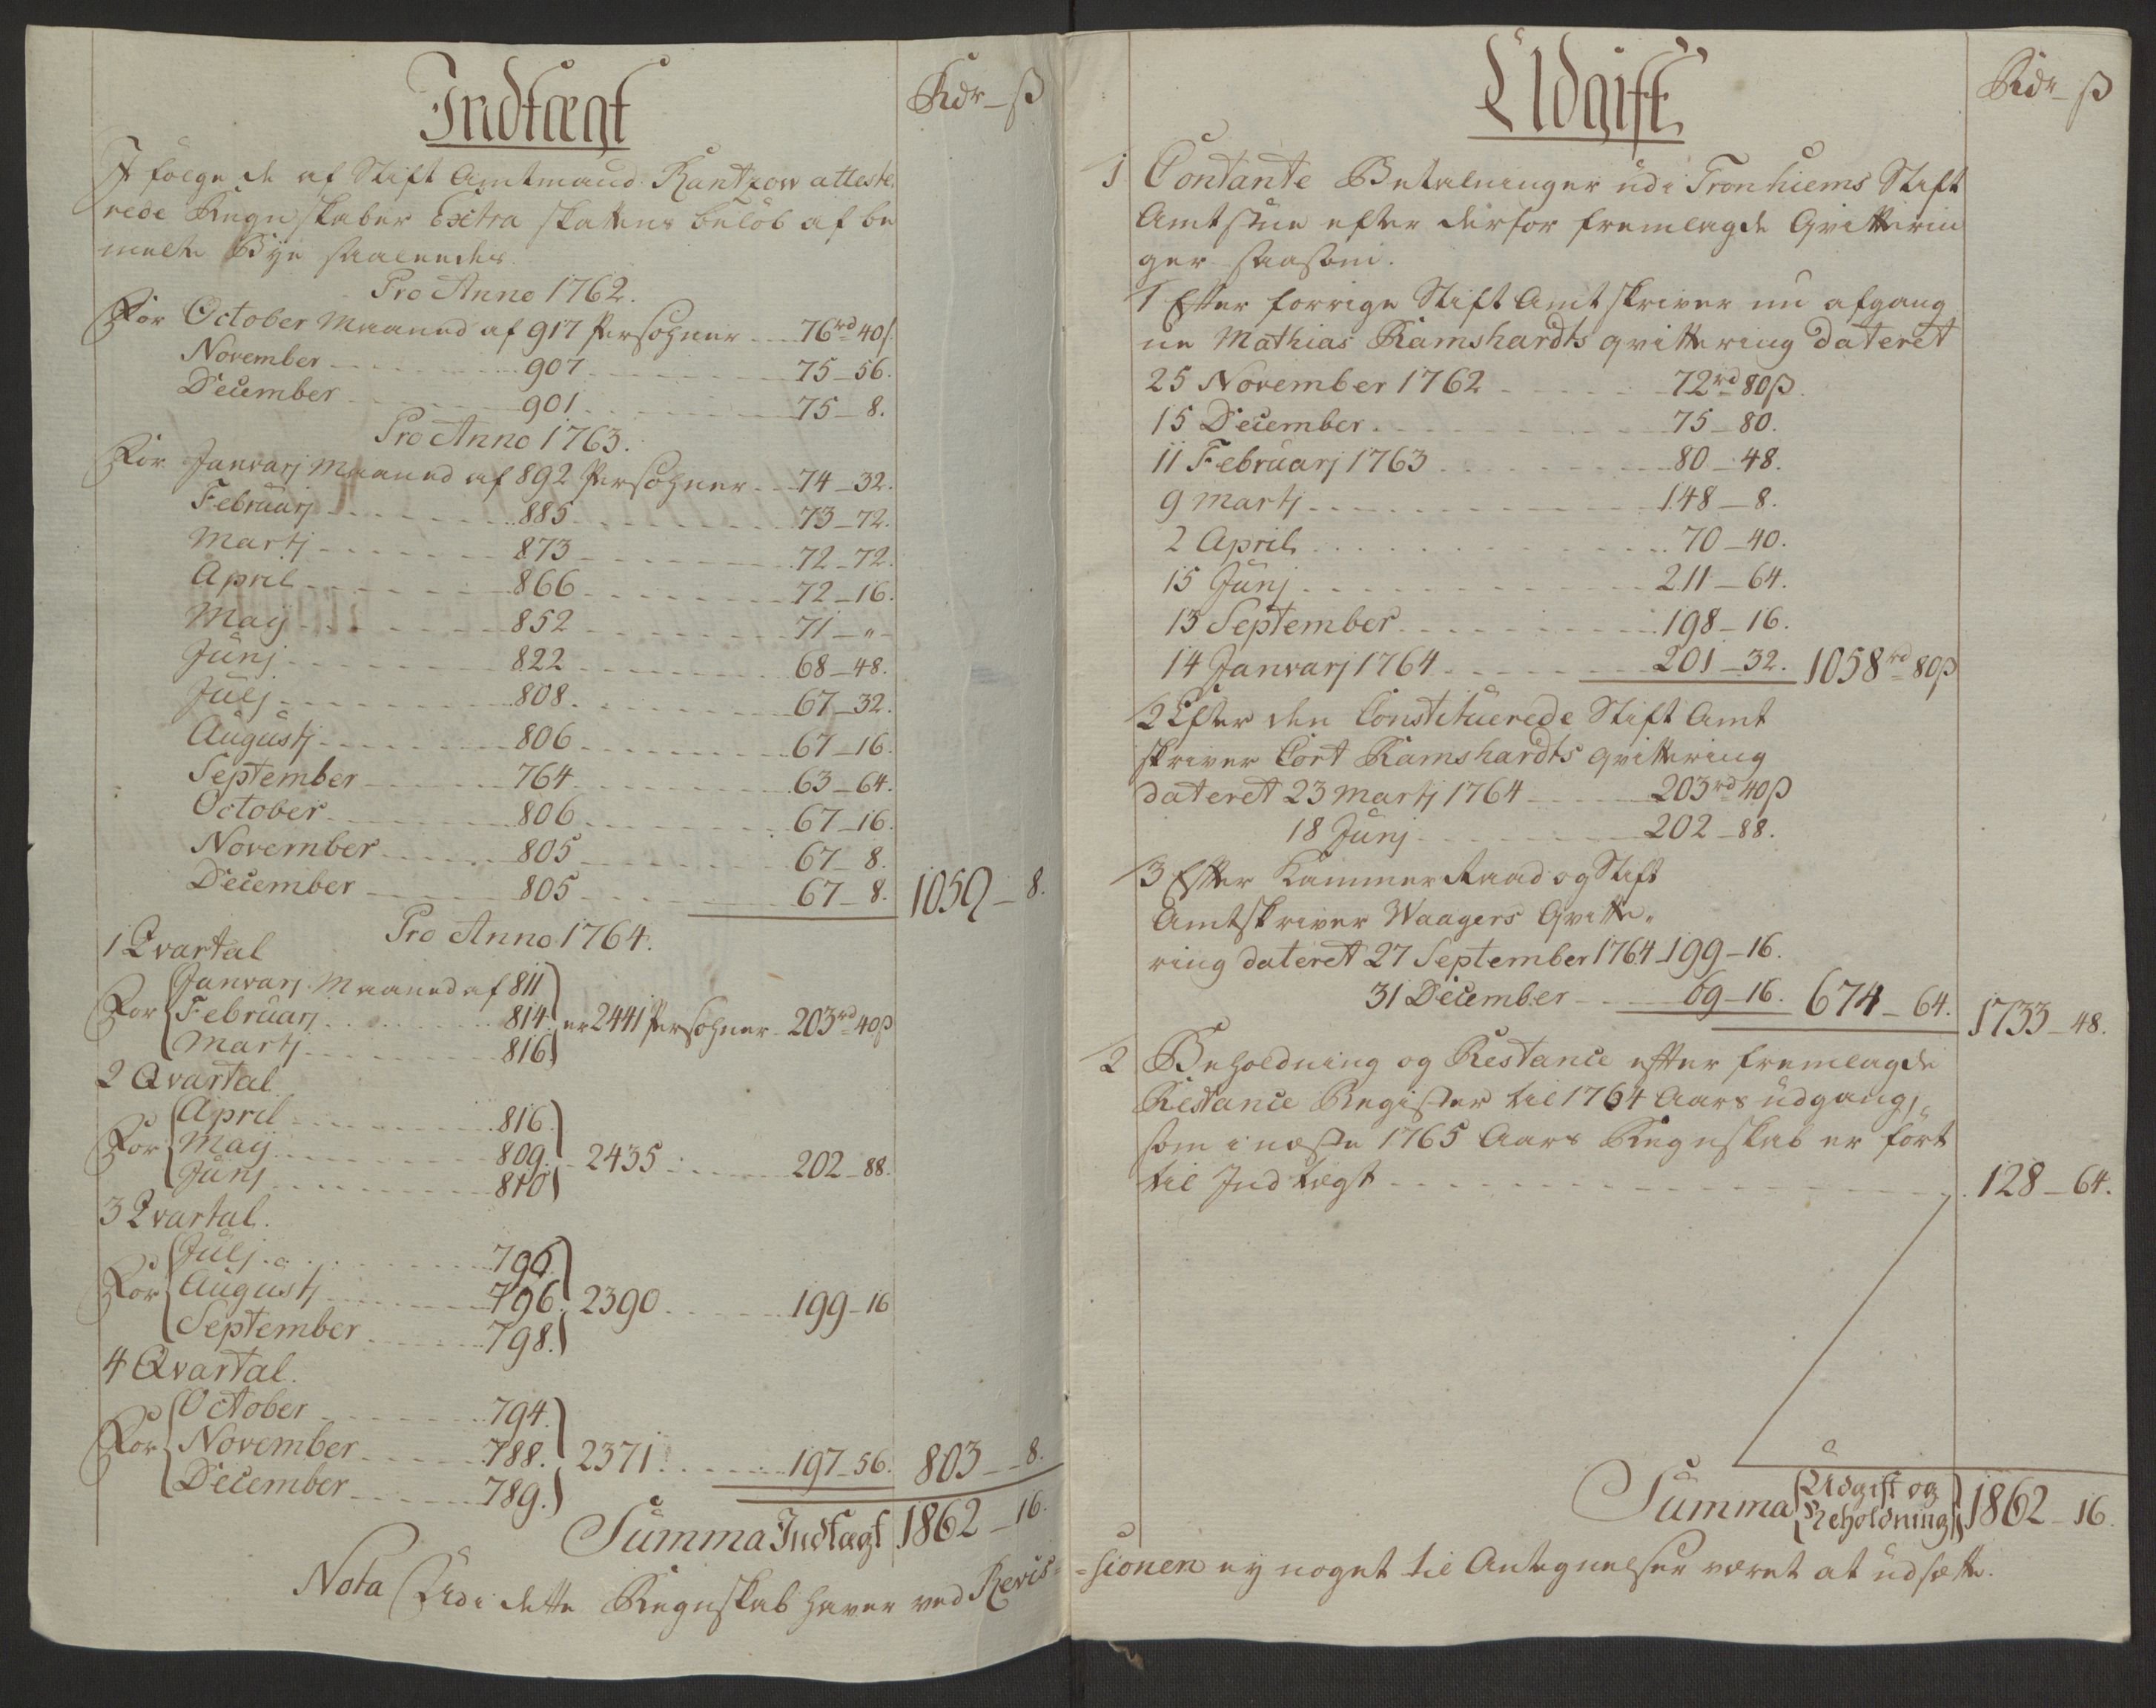 Indtægt
Rdr - ß
I følge de af Stift Amtmand Rantzow atteste,
rede Regnskaber Extra skattens beløb af be
melte Bye saaledes
Pro Anno 1762.
For October Maaned af 917 Persohner 76rd 40ß
November 907 75-56.
December 901 75-8.
Pro Anno 1763.
For Janvarj Maaned af 892 Persohner 74-32.
Februarj 885 73-72.
Martj 873 72-72.
April 866 72-16.
Maij 852 71-"-
Junj 822 68-48.
Julj 808. 67-32.
Augustj 806 67-16.
September 764 63-64.
October 806 67-16.
November 805 67-8.
December 805 67-8. 1059-8.
Pro Anno 1764.
1 Qvartal
For Janvarj Maaned af 811
Februarj 814 er 2441 Persohner 203rd 40ß
Martj 816
2 Qvartal
For April 816.
Maij 809. 2435 202-88.
Junj 810
3 Qvartal.
For Julj 796.
Augustj 796. 2390 199-16
September 798.
4 Qvartal.
For October 794.
November 788. 2371. 197-56. 803-8.
December 789.
Summa Indtægt 1862-16.
Nota Udi dette Regnskab haver ved Revis=
Udgift
Rdr - ß
1 Contante Betalninger udi Tronhiems Stift
Amtstue efter derfor fremlagde Qvitterin
ger saasom.
1 Efter forrige Stift Amtskriver nu afgang
ne Mathias Ramshardts qvittering dateret
25 November 1762 72rd 80ß.
15 December 75-80.
11 Februarj 1763 80-48.
9 Martj 148-8.
2 April 70-40.
15 Junj 211-64.
13 September 198-16.
14 Janvarj 1764 201-32. 1058rd 80ß
2 Efter den Constituerede Stift Amt
skriver Cort Ramshardts qvittering
dateret 23 Martj 1764 203rd 40ß
18 Junj 202-88.
3 Efter Kammer Raad og Stift
Amtskriver Waagers Qvitte,,
ring dateret 27 September 1764 199-16.
31 December 69-16. 674-64. 1733-48.
2 Beholdning og Restance efter fremlagde
Restance Register til 1764 Aars udgang,
som i næste 1765 Aars Regnskab er ført
til Indtægt 128-64.
Summa Udgift og Beholdning 1862-16.
=sionen ey noget til Antegnelser været at udsætte.